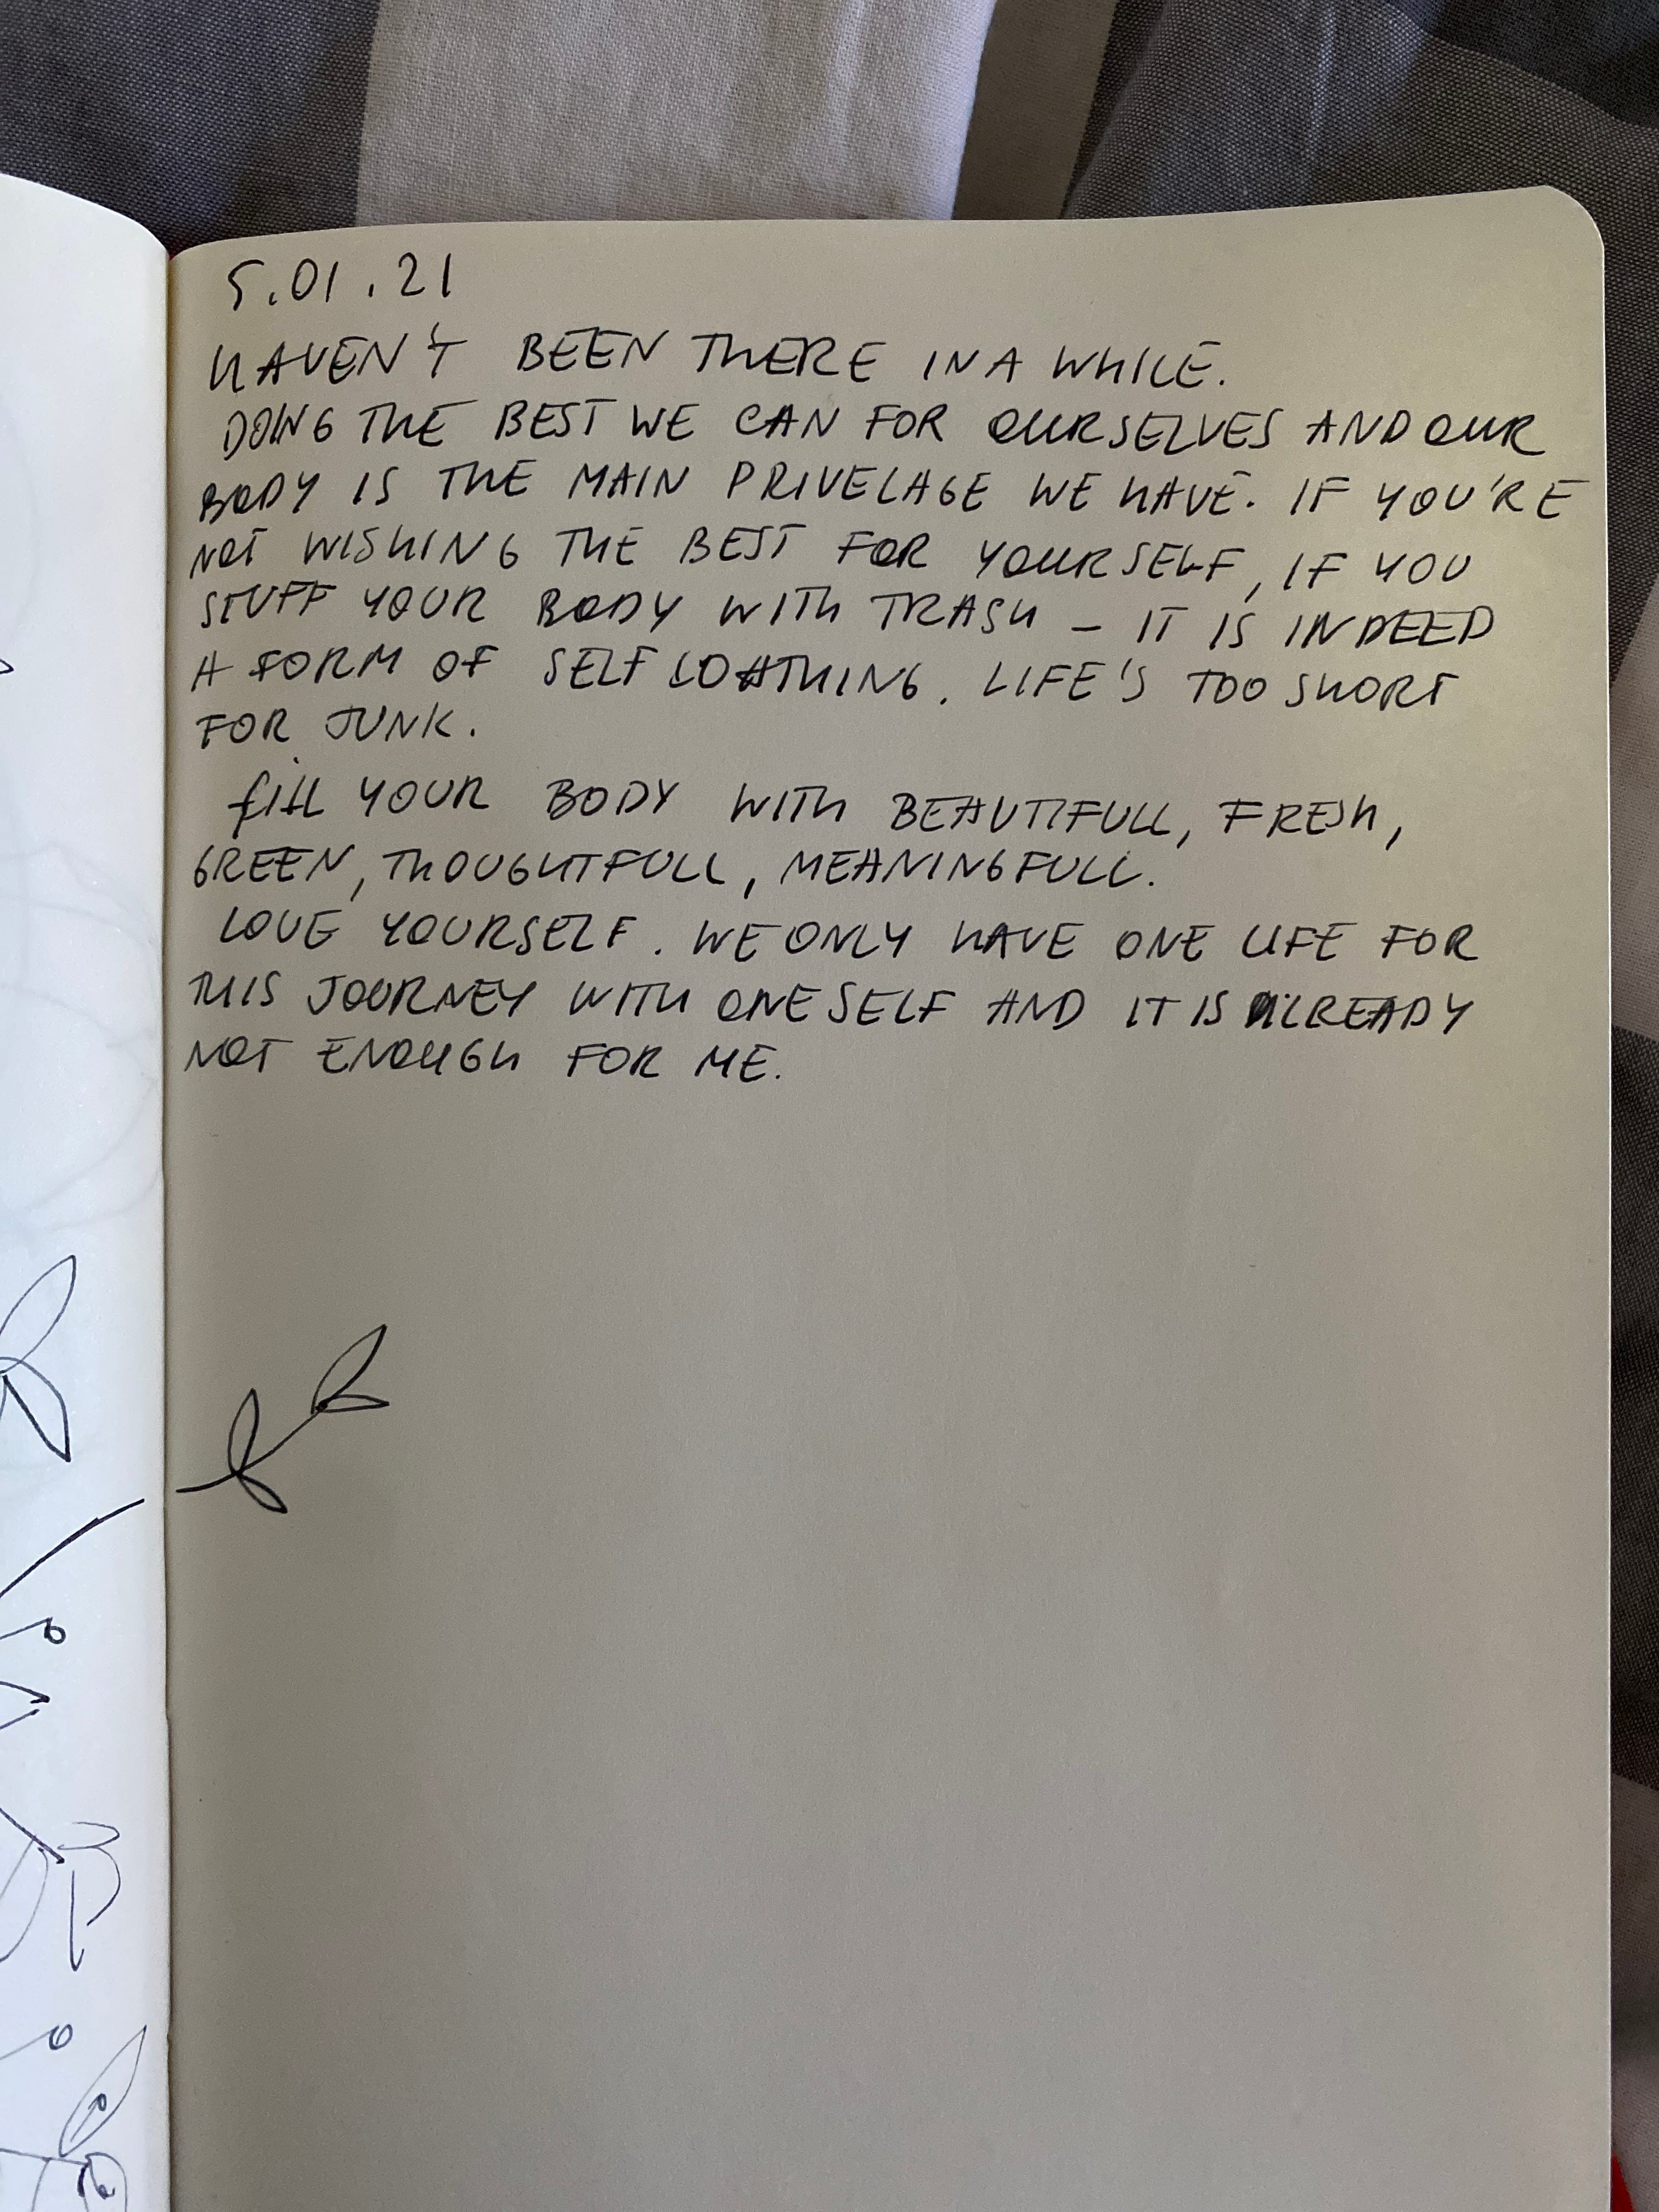 5.01.21
HAVEN'T BEEN THERE IN A WHILE.
DOING THE BEST WE CAN FOR OURSELVES AND OUR
BODY IS THE MAIN PRIVELAGE WE HAVE. IF YOU'RE
NOT WISHING THE BEST FOR YOURSELF, IF YOU
STUFF YOUR BODY WITH TRASH – IT IS INDEED
A FORM OF SELF LOATHING. LIFE'S TOO SHORT
FOR JUNK.
fill YOUR BODY WITH BEAUTIFULL, FRESH,
GREEN, THOUGHTFULL, MEANINGFULL.
LOVE YOURSELF. WE ONLY HAVE ONE LIFE FOR
THIS JOURNEY WITH ONESELF AND IT IS ALREADY
NOT ENOUGH FOR ME.